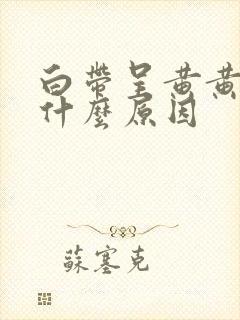 白帶呈黃黃
什麼原因
蘇塞克